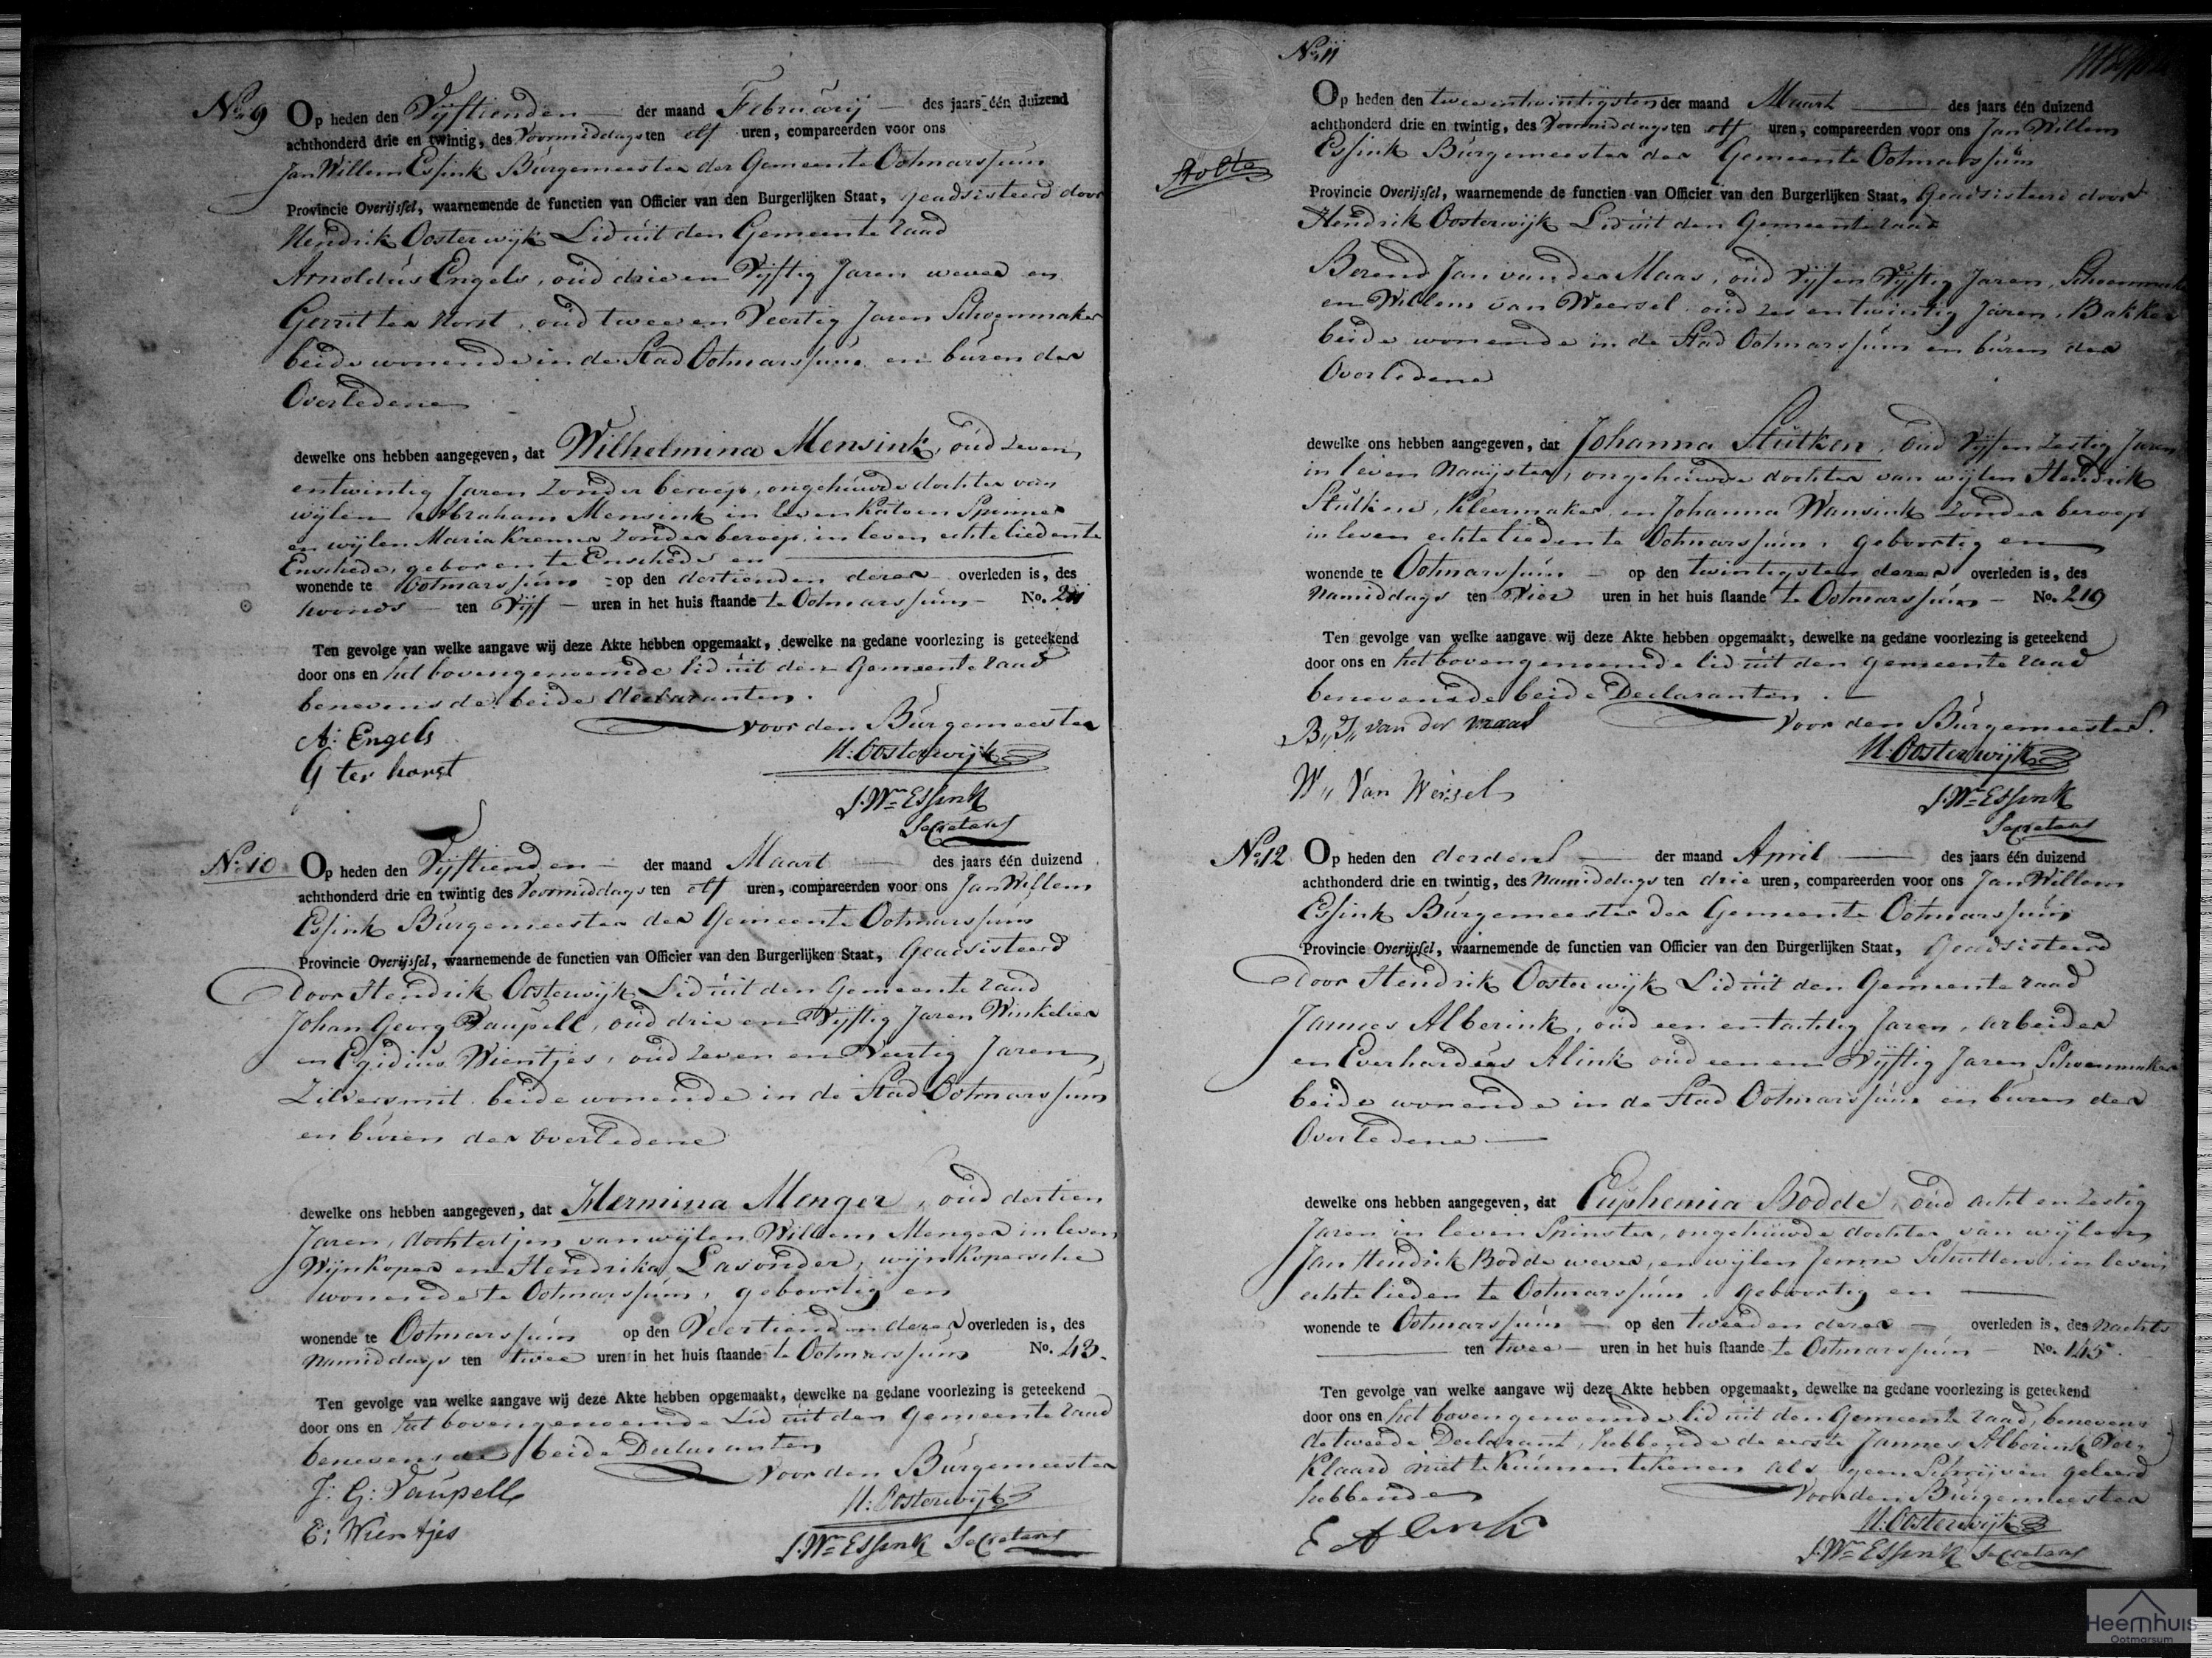 No. 9 Op heden den Vijftienden der maand Februarij des jaars één duizend
achthonderd drie en twintig, des Voormiddags ten elf uren, compareerden voor ons
Jan Willem Essink Burgemeester der Gemeente Ootmarssum
Provincie Overijssel, waarnemende de functien van Officier van den Burgerlijken Staat, geadsisteerd door
Hendrik Oosterwijk Lid uit den Gemeente raad
Arnoldus Engels, oud drie en Vijftig Jaren wever en
Gerrit ter Horst, oud twee en Veertig Jaren Schoenmaker
beide wonende in de Stad Ootmarssum en buren der
Overledene
dewelke ons hebben aangegeven, dat Wilhelmina Mensink, oud zeven
entwintig Jaren zonder beroep, ongehuwde dochter van
wijlen Abraham Mensink in leven Katoen Spinner
en wijlen Maria Kremer zonder beroep, in leven echtelieden te
Enschede, geboren te Enschede en
wonende te Ootmarssum op den dertienden dezer overleden is, des
avonds ten Vijf uren in het huis staande te Ootmarssum No.
Ten gevolge van welke aangave wij deze Akte hebben opgemaakt, dewelke na gedane voorlezing is geteekend
door ons en het bovengenoemde lid uit den Gemeente raad
benevens de beide declaranten.
Voor den Burgemeester
A: Engels
H: Oosterwijk
G ter horst
J. Wm Essink
Secretaris
No. 10 Op heden den Vijftienden der maand Maart des jaars één duizend
achthonderd drie en twintig des Voormiddags ten elf uren, compareerden voor ons Jan Willem
Essink Burgemeester der Gemeente Ootmarssum
Provincie Overijssel, waarnemende de functien van Officier van den Burgerlijken Staat, Geadsisteerd
door Hendrik Oosterwijk Lid uit den Gemeente raad
Johan Georg Vaupell, oud drie en Vijftig Jaren Winkelier
en Egidius Wientjes, oud zeven en Veertig Jaren
Zilversmit beide wonende in de Stad Ootmarssum
en buren der overledene
dewelke ons hebben aangegeven, dat Hermina Menger, oud dertien
Jaren, dochtertjen van wijlen Willem Menger in leven
Wijnkoper en Hendrika Lasonder, wijnkopersche
wonende te Ootmarssum, geboortig en
wonende te Ootmarssum op den Veertienden dezer overleden is, des
Namiddags ten twee uren in het huis staande te Ootmarssum No. 43.
Ten gevolge van welke aangave wij deze Akte hebben opgemaakt, dewelke na gedane voorlezing is geteekend
door ons en het bovengenoemde Lid uit den Gemeente raad
benevens de beide Declaranten
Voor den Burgemeester
J: G: Vaupell
H: Oosterwijk
E: Wientjes
J. Wm Essink Secretaris
No. 11
Op heden den tweeentwintigsten der maand Maart des jaars één duizend
achthonderd drie en twintig, des Voormiddags ten elf uren, compareerden voor ons Jan Willem
Essink Burgemeester der Gemeente Ootmarssum
Provincie Overijssel, waarnemende de functien van Officier van den Burgerlijken Staat, Geadsisteerd door
Hendrik Oosterwijk Lid uit den Gemeente raad
Berend Jan van der Maas, oud Vijf en Vijftig Jaren, Schoenmaker
en Willem van Weersel oud zes en twintig Jaren, Bakker
beide wonende in de Stad Ootmarssum en buren der
Overledene
dewelke ons hebben aangegeven, dat Johanna Stutken, oud Vijf en Zestig Jaren
in leven Naaijster, ongehuwde dochter van wijlen Hendrik
Stutken, Kleermaker en Johanna Wansink zonder beroep
in leven echtelieden te Ootmarssum, geboortig en
wonende te Ootmarssum op den twintigsten dezer overleden is, des
Namiddags ten Vier uren in het huis staande te Ootmarssum No. 219
Ten gevolge van welke aangave wij deze Akte hebben opgemaakt, dewelke na gedane voorlezing is geteekend
door ons en het bovengenoemde lid uit den gemeente raad
benevens de beide Declaranten.
Voor den Burgemeester.
B,, J,, van der maas
H: Oosterwijk
W,, Van Wersel
J. Wm Essink
Secretaris
No. 12 Op heden den derden der maand April des jaars één duizend
achthonderd drie en twintig, des Namiddags ten drie uren, compareerden voor ons Jan Willem
Essink Burgemeester der Gemeente Ootmarssum
Provincie Overijssel, waarnemende de functien van Officier van den Burgerlijken Staat, Geadsisteerd
door Hendrik Oosterwijk Lid uit den Gemeente raad
Jannes Alberink, oud een entachtig Jaren, arbeider
en Everhardus Alink oud een en Vijftig Jaren Schoenmaker
beide wonende in de Stad Ootmarssum en buren der
Overledene
dewelke ons hebben aangegeven, dat Euphemia Bodde, oud acht en zestig
Jaren in leven Spinster, ongehuwde dochter van wijlen
Jan Hendrik Bodde wever, en wijlen Jenne Schutten, in leven
echtelieden te Ootmarssum, geboortig en
wonende te Ootmarssum op den tweeden dezer overleden is, des Nachts
ten twee uren in het huis staande te Ootmarssum No. 145.
Ten gevolge van welke aangave wij deze Akte hebben opgemaakt, dewelke na gedane voorlezing is geteekend
door ons en het bovengenoemde lid uit den Gemeente raad, benevens
de tweede Declarant, hebbende de eerste Jannes Alberink Ver-
klaard niet te kunnen tekenen als geen Schrijven geleerd
hebbende
Voor den Burgemeester
H: Oosterwijk
E Alink
J. Wm Essink Secretaris
Heemhuis
Ootmarsum